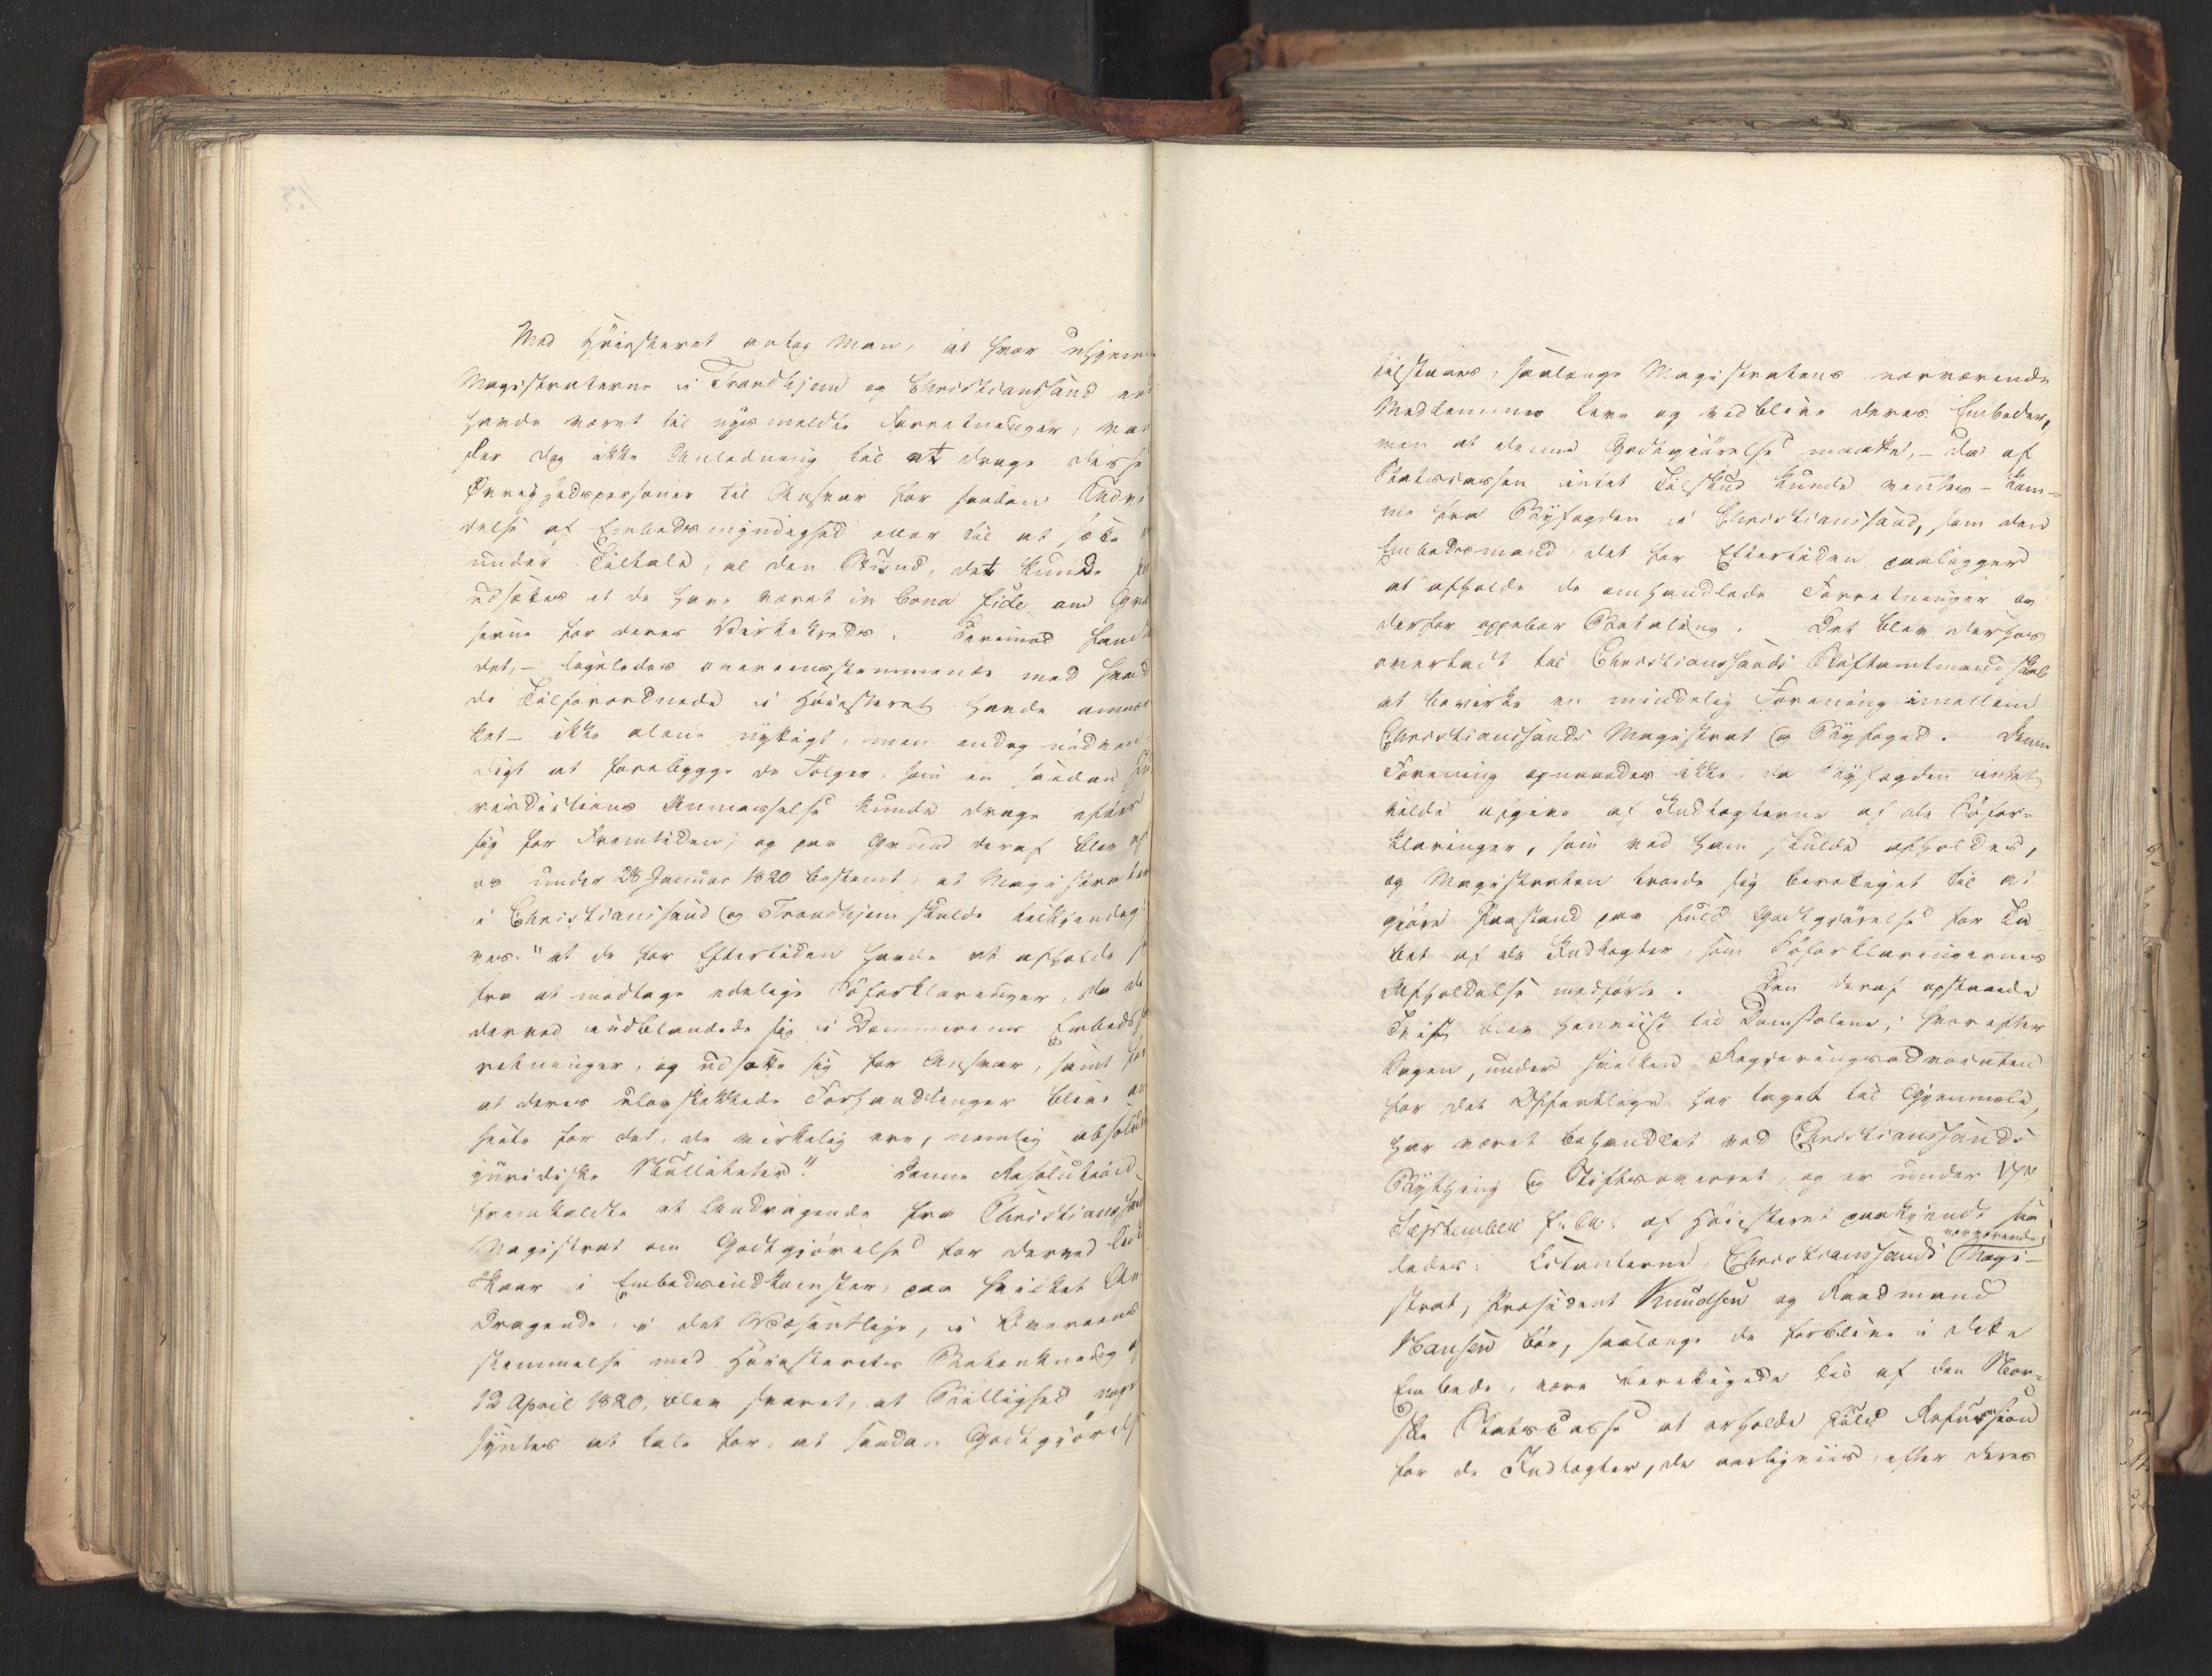 Med Høiesteret antog Man, at hvor uhjem
Magistraterne i Trondhjem og Christianssand end
havde været til nysmeldte Forretninger, var
der dog ikke Anledning til at drage disse
Øvrighedspersoner til Ansvar for saadan Udvi
delse af Embedsmyndighed eller til at sætte
under Tiltale, al den Stund, det kunde for
udsættes at de have været in bona fide om Græn
serne for deres Virkekreds. Derimod fand
det, – ligeledes overeensstemmende med hvad
de Tilforordnede i Høiesteret havde anmær
ket – ikke alene nyttigt, men endog nødven
digt at forebygge de Følger, som en saadan Ju
risdictions Anmasselse kunde drage efter
sig for Fremtiden; og paa Grund deraf blev
os under 28 Januar 1820 bestemt, at Magistrater
i Christianssand og Trondhjem skulde tilkjendegi
ves: "at de for Eftertiden havde at afholde
fra at modtage edelige Søforklaringer, da de
derved indblandede sig i Dommerens Embedsfor
retninger, og udsatte sig for Ansvar, samt for
at deres ulovskikkede Forhandlinger blive an
seete for det, de virkelig ere, nemlig absolute
juridiske Nulliteter." Denne Resolution
fremkaldte et Andragende fra Christianssands
Magistrat om Godtgjørelse for derved lidt
Skaar i Embedsindkomster, paa hvilket An
dragende, i det Væsentlige, i Overeens
stemmelse med Høiesterets Betænkning
12 April 1820, blev svaret, at Billighed noget
syntes at tale for, at saadan Godtgjørelse
tilstaaes, saalænge Magistratens nærværende
Medlemmer leve og vedblive deres Embeder,
men at denne Godtgjørelse maatte, – da af
Statscassen intet Tilskud kunde ventes – kom-
me fra Byfogden i Christianssand, som den
Embedsmand, det for Eftertiden paaligger
at afholde de omhandlede Forretninger og
derfor oppebær Betaling. Det blev derhos
overladt til Christianssands Stiftamtmandskab
at bevirke en mindelig Forening imellem
Christianssands Magistrat og Byfoged. Denne
Forening opnaaedes ikke, da Byfogden intet
vilde afgive af Indtægterne af de Søfor-
klaringer, som ved ham skulde afholdes,
og Magistraten troede sig berettiget til at
gjøre Paastand paa fuld Godtgjørelse for Ta
bet af de Indtægter, som Søforklaringernes
Afholdelse medførte. Den deraf opstaaede
Tvist blev henviist til Domstolene; hvorefter
Sagen, under hvilken Regjeringsadvocaten
for det Offentlige har taget til Gjenmæle,
har været behandlet ved Christianssands
Bything og Stiftsoverret, og er under 17de
September f: A: af Høiesteret paakjendt saa
ledes: Citanterne, Christianssands nærværende Magi-
strat, Præsident Knudsen og Raadmand
Hansen bør, saalænge de forblive i dette
Embede, være berettigede til af den Nor-
ske Statscasse at erholde fuld Refusion
for de Indtægter, de aarligviis, efter deres